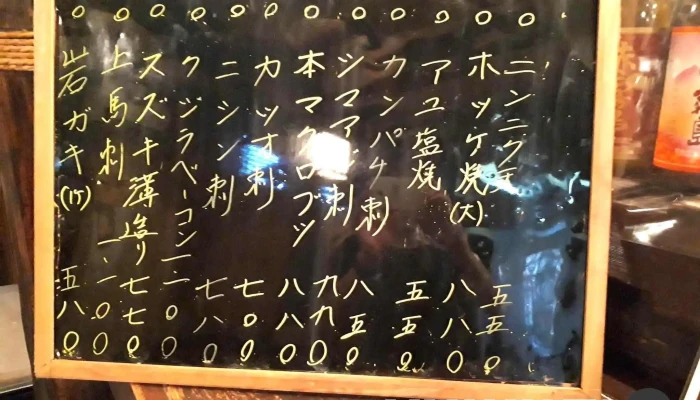 〇〇〇〇〇〇〇〇〇〇〇〇
ニンニク天 五五〇
ホッケ焼(大) 八八〇
アユ塩焼 五五〇
カンパチ刺 八五〇
シマアジ刺 九九〇
本マグロブツ 八八〇
カツオ刺 七〇〇
ニシン刺 七八〇
クジラベーコン 一二〇〇
スズキ薄造り 七七〇
上馬刺 一、一〇〇
岩ガキ(1ケ) 五八〇